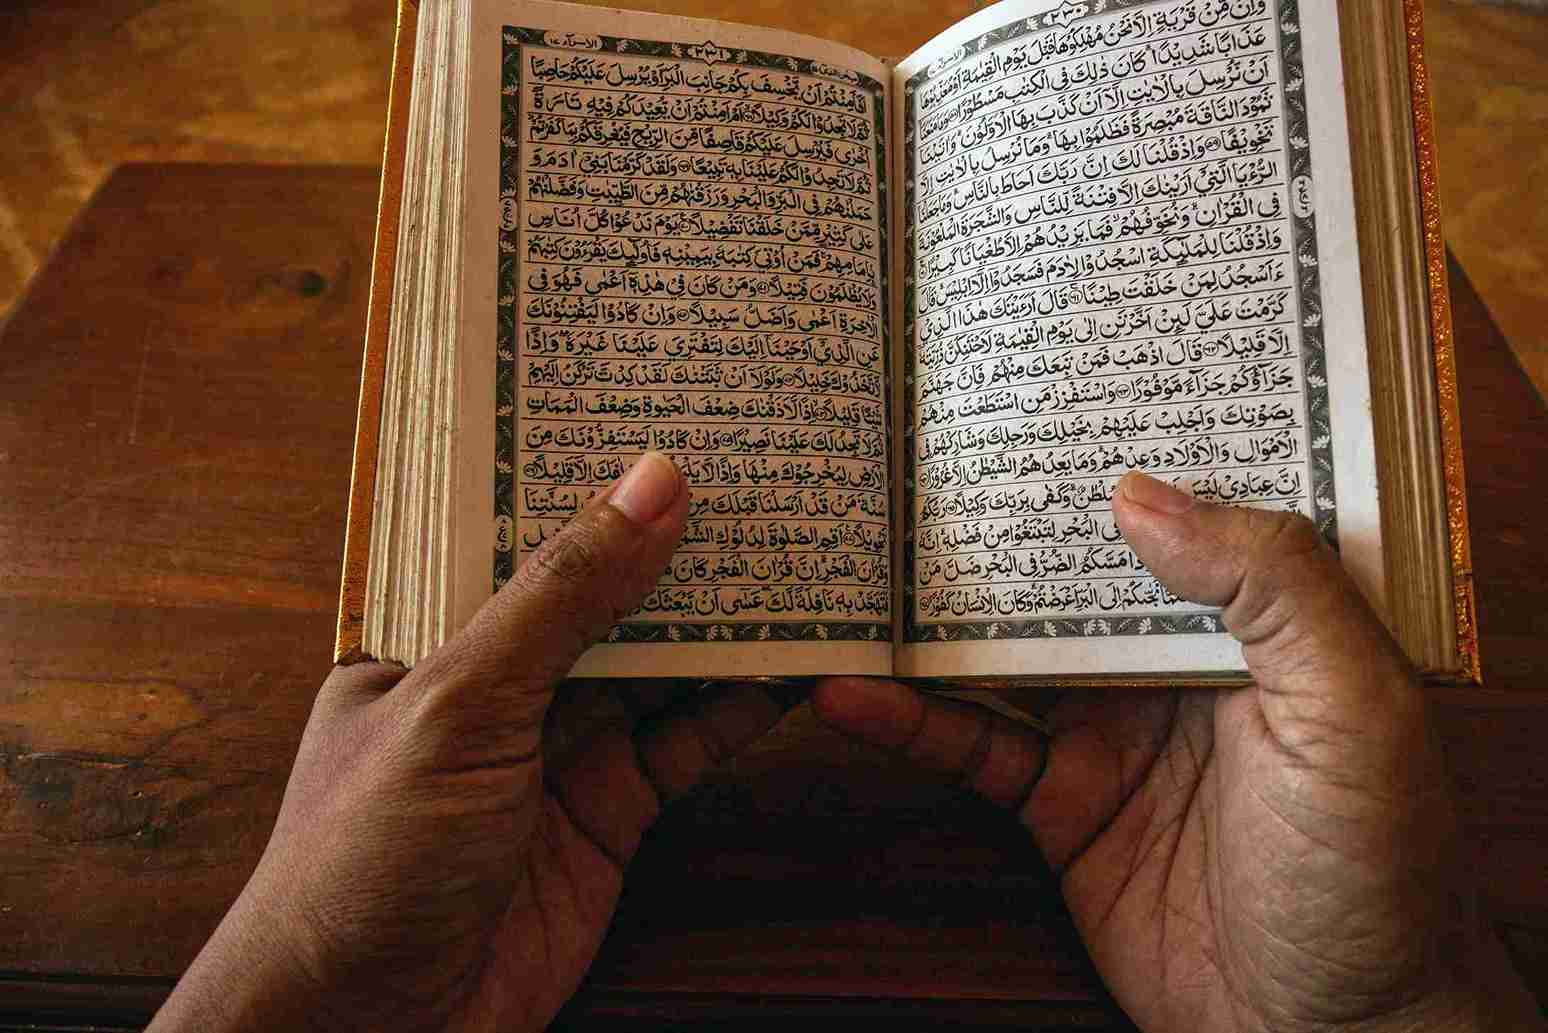 وَاِنْ مِّنْ قَرْيَةٍ اِلَّا نَحْنُ مُهْلِكُوْهَا قَبْلَ يَوْمِ الْقِيٰمَةِ اَوْ مُعَذِّبُوْهَا
عَذَابًا شَدِيْدًا كَانَ ذٰلِكَ فِى الْكِتٰبِ مَسْطُوْرًا ۝٥٨ وَمَا مَنَعَنَآ
اَنْ نُّرْسِلَ بِالْاٰيٰتِ اِلَّآ اَنْ كَذَّبَ بِهَا الْاَوَّلُوْنَ وَاٰتَيْنَا
ثَمُوْدَ النَّاقَةَ مُبْصِرَةً فَظَلَمُوْا بِهَا وَمَا نُرْسِلُ بِالْاٰيٰتِ اِلَّا
تَخْوِيْفًا ۝٥٩ وَاِذْ قُلْنَا لَكَ اِنَّ رَبَّكَ اَحَاطَ بِالنَّاسِ وَمَا جَعَلْنَا
الرُّءْيَا الَّتِيْٓ اَرَيْنٰكَ اِلَّا فِتْنَةً لِّلنَّاسِ وَالشَّجَرَةَ الْمَلْعُوْنَةَ
فِى الْقُرْاٰنِ وَنُخَوِّفُهُمْ فَمَا يَزِيْدُهُمْ اِلَّا طُغْيَانًا كَبِيْرًا ۝٦٠
وَاِذْ قُلْنَا لِلْمَلٰٓئِكَةِ اسْجُدُوْا لِاٰدَمَ فَسَجَدُوْٓا اِلَّآ اِبْلِيْسَ قَالَ
ءَاَسْجُدُ لِمَنْ خَلَقْتَ طِيْنًا ۝٦١ قَالَ اَرَءَيْتَكَ هٰذَا الَّذِيْ
كَرَّمْتَ عَلَيَّ لَئِنْ اَخَّرْتَنِ اِلٰى يَوْمِ الْقِيٰمَةِ لَاَحْتَنِكَنَّ ذُرِّيَّتَهٗٓ
اِلَّا قَلِيْلًا ۝٦٢ قَالَ اذْهَبْ فَمَنْ تَبِعَكَ مِنْهُمْ فَاِنَّ جَهَنَّمَ
جَزَآؤُكُمْ جَزَآءً مَّوْفُوْرًا ۝٦٣ وَاسْتَفْزِزْ مَنِ اسْتَطَعْتَ مِنْهُمْ
بِصَوْتِكَ وَاَجْلِبْ عَلَيْهِمْ بِخَيْلِكَ وَرَجِلِكَ وَشَارِكْهُمْ فِى
الْاَمْوَالِ وَالْاَوْلَادِ وَعِدْهُمْ وَمَا يَعِدُهُمُ الشَّيْطٰنُ اِلَّا غُرُوْرًا ۝٦٤
اِنَّ عِبَادِيْ لَيْسَ سُلْطٰنٌ وَكَفٰى بِرَبِّكَ وَكِيْلًا ۝٦٥ رَبُّكُمُ
الْبَحْرِ لِتَبْتَغُوْا مِنْ فَضْلِهٖ اِنَّهٗ
مَسَّكُمُ الضُّرُّ فِى الْبَحْرِ ضَلَّ مَنْ
اِلَى الْبَرِّ اَعْرَضْتُمْ وَكَانَ الْاِنْسَانُ كَفُوْرًا ۝٦٧
الاسرآء ١٧
اَفَاَمِنْتُمْ اَنْ يَّخْسِفَ بِكُمْ جَانِبَ الْبَرِّ اَوْ يُرْسِلَ عَلَيْكُمْ حَاصِبًا
ثُمَّ لَا تَجِدُوْا لَكُمْ وَكِيْلًا ۝٦٨ اَمْ اَمِنْتُمْ اَنْ يُّعِيْدَكُمْ فِيْهِ تَارَةً
اُخْرٰى فَيُرْسِلَ عَلَيْكُمْ قَاصِفًا مِّنَ الرِّيْحِ فَيُغْرِقَكُمْ بِمَا كَفَرْتُمْ
ثُمَّ لَا تَجِدُوْا لَكُمْ عَلَيْنَا بِهٖ تَبِيْعًا ۝٦٩ وَلَقَدْ كَرَّمْنَا بَنِيْٓ اٰدَمَ وَ
حَمَلْنٰهُمْ فِى الْبَرِّ وَالْبَحْرِ وَرَزَقْنٰهُمْ مِّنَ الطَّيِّبٰتِ وَفَضَّلْنٰهُمْ
عَلٰى كَثِيْرٍ مِّمَّنْ خَلَقْنَا تَفْضِيْلًا ۝٧٠ يَوْمَ نَدْعُوْا كُلَّ اُنَاسٍ
بِاِمَامِهِمْ فَمَنْ اُوْتِيَ كِتٰبَهٗ بِيَمِيْنِهٖ فَاُولٰٓئِكَ يَقْرَءُوْنَ كِتٰبَهُمْ
وَلَا يُظْلَمُوْنَ فَتِيْلًا ۝٧١ وَمَنْ كَانَ فِيْ هٰذِهٖٓ اَعْمٰى فَهُوَ فِى
الْاٰخِرَةِ اَعْمٰى وَاَضَلُّ سَبِيْلًا ۝٧٢ وَاِنْ كَادُوْا لَيَفْتِنُوْنَكَ
عَنِ الَّذِيْٓ اَوْحَيْنَآ اِلَيْكَ لِتَفْتَرِيَ عَلَيْنَا غَيْرَهٗ وَاِذًا
لَّاتَّخَذُوْكَ خَلِيْلًا ۝٧٣ وَلَوْلَآ اَنْ ثَبَّتْنٰكَ لَقَدْ كِدْتَّ تَرْكَنُ اِلَيْهِمْ
شَيْـًٔا قَلِيْلًا ۝٧٤ اِذًا لَّاَذَقْنٰكَ ضِعْفَ الْحَيٰوةِ وَضِعْفَ الْمَمَاتِ
ثُمَّ لَا تَجِدُ لَكَ عَلَيْنَا نَصِيْرًا ۝٧٥ وَاِنْ كَادُوْا لَيَسْتَفِزُّوْنَكَ مِنَ
الْاَرْضِ لِيُخْرِجُوْكَ مِنْهَا وَاِذًا لَّا اِلَّا قَلِيْلًا ۝٧٦
سُنَّةَ مَنْ قَدْ اَرْسَلْنَا قَبْلَكَ مِنْ لِسُنَّتِنَا
تَحْوِيْلًا ۝٧٧ اَقِمِ الصَّلٰوةَ لِدُلُوْكِ
وَقُرْاٰنَ الْفَجْرِ اِنَّ قُرْاٰنَ الْفَجْرِ كَانَ
فَتَهَجَّدْ بِهٖ نَافِلَةً لَّكَ عَسٰٓى اَنْ يَّبْعَثَكَ